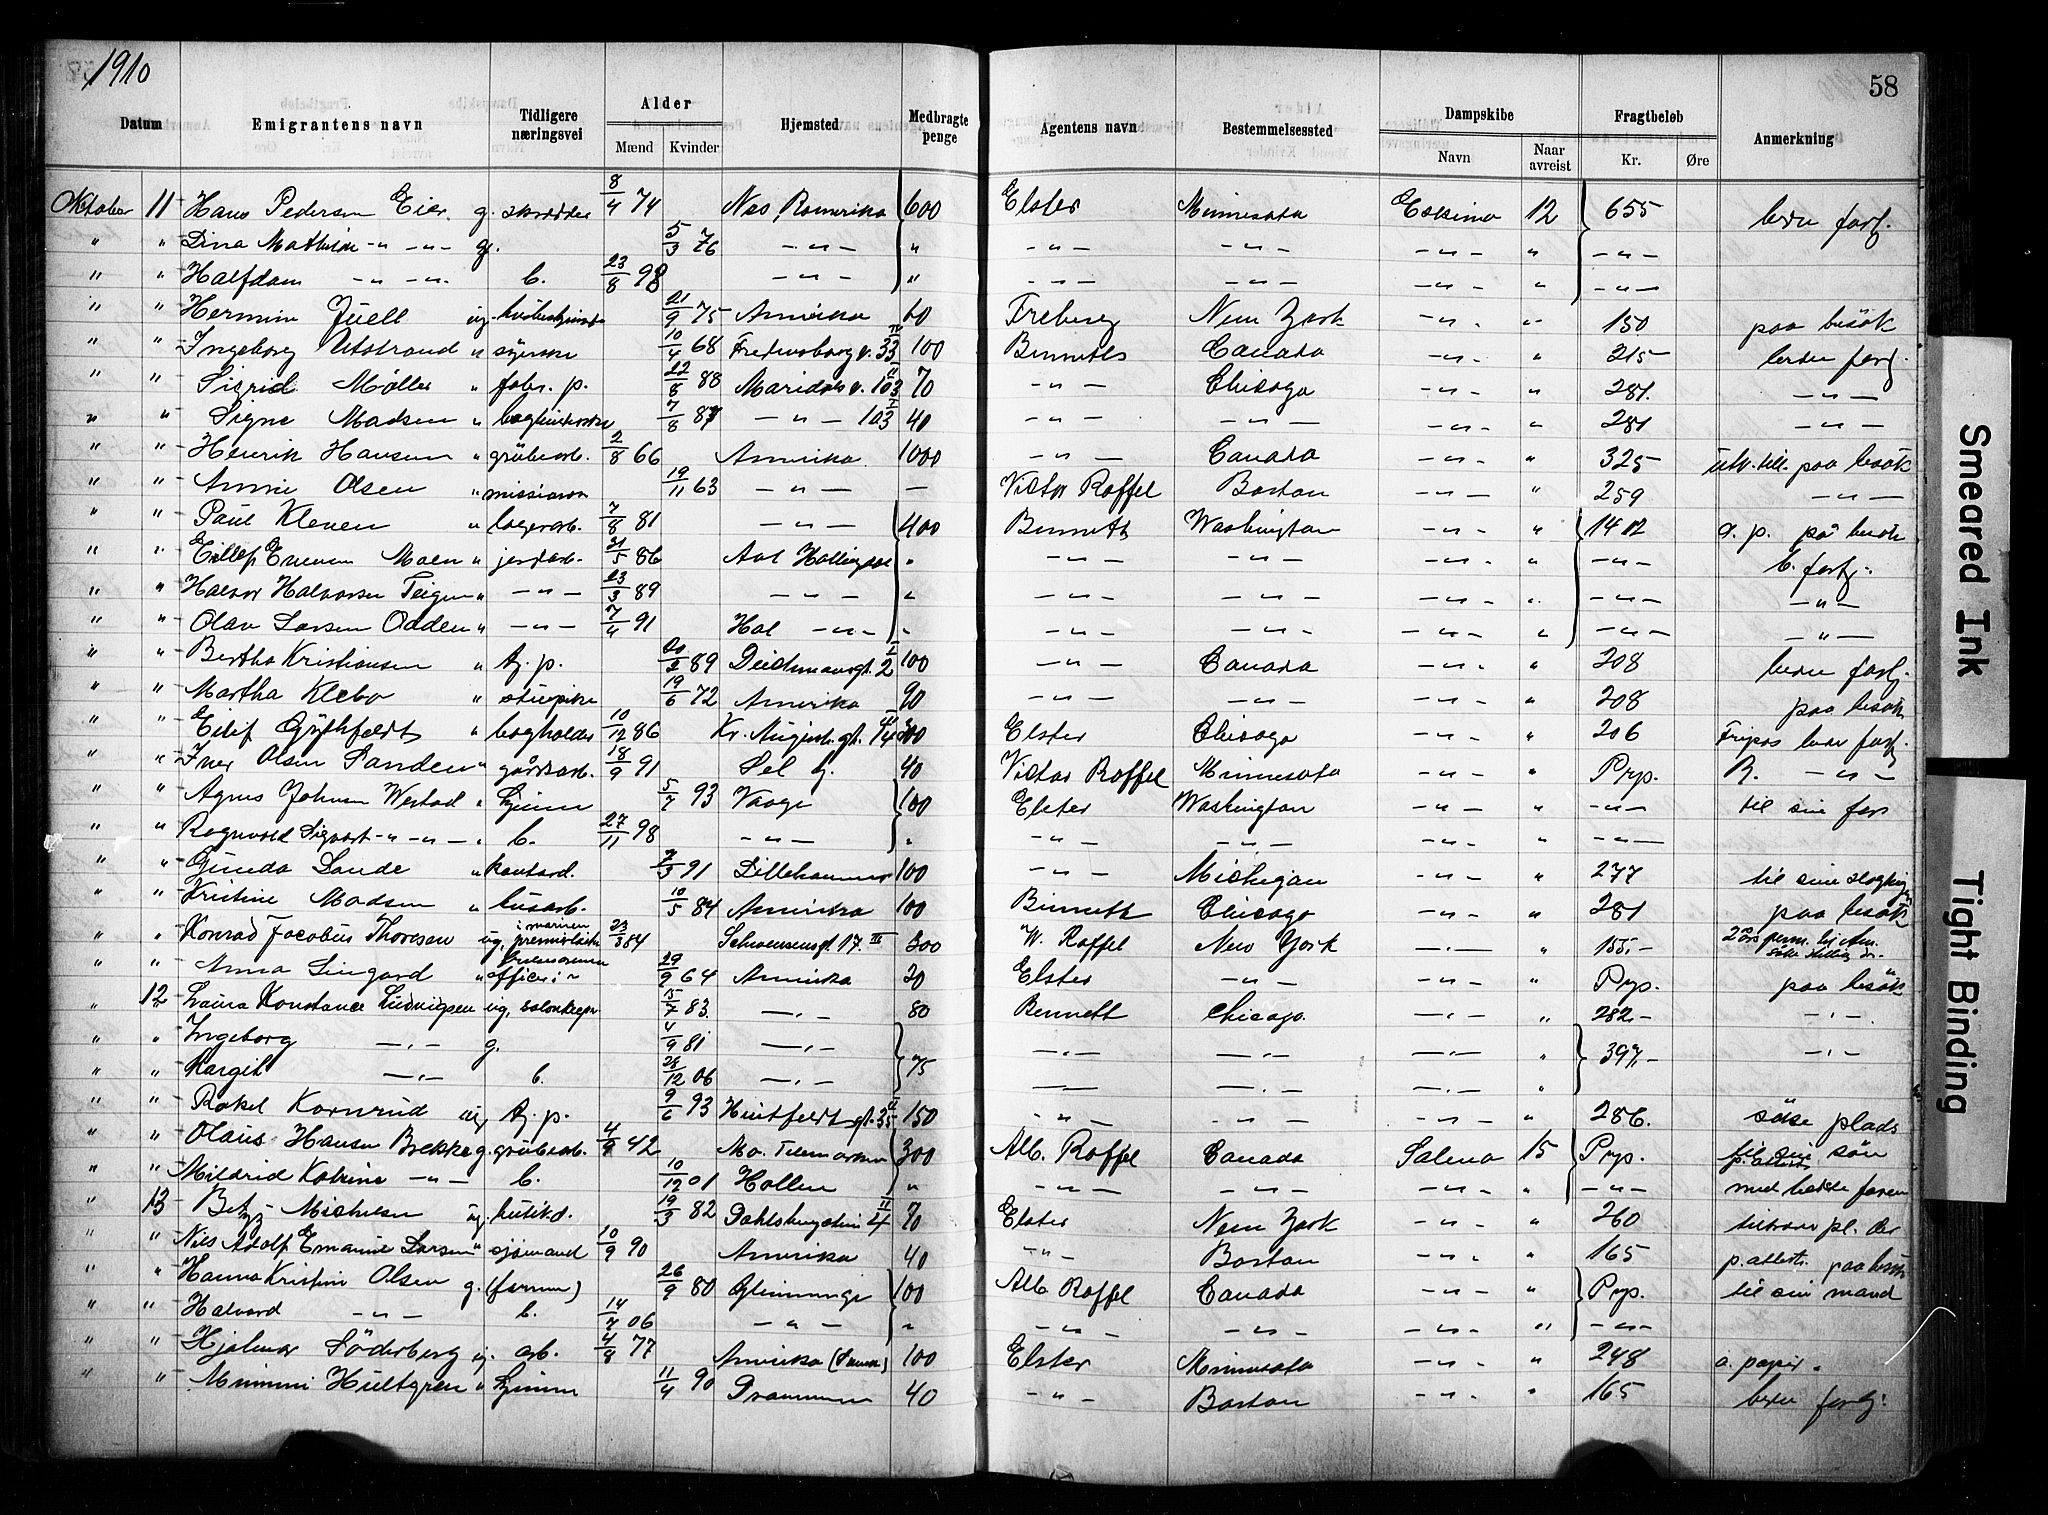 1910
58
Datum Emigrantens navn Tidligere næringsvei Alder Mænd Kvinder Hjemsted Medbragte penge Agentens navn Bestemmelsessted Dampskibe Navn Naar avreist Fragtbeløb Kr. Øre Anmerkning
Oktober 11 Hans Pedersen Eier g. skrædder 8/4 74 Nes Romerike 600 Elster Minnesota Eskimo 12 655 bedre fortj.
" " Dina Mathilde -"- -"- g. 5/3 76 -"- " -"- -"- -"- " -"-
" " Halfdan -"- -"- b. 23/8 98 -"- " -"- -"- -"- " -"-
" " Hermine Juell ug. husbestyrerinde 21/9 75 Amerika 60 Freberg New York -"- " 150 paa besök
" " Ingeborg Utstrand " syerske 10/4 68 Fredensborgv. 33 IV 100 Bennetts Canada -"- " 215 bedre fortj.
" " Sigrid Møller " fabr. p. 22/8 88 Maridalsv. 103 II 70 -"- Chicago -"- " 281. -"-
" " Signe Madsen " 7/8 87 -"- 103 40 -"- -"- -"- " 281 -"-
" " Henrik Hansen " grubearb. 2/8 66 Amerika 1000 -"- Canada -"- " 325 utv. till. paa besök
" " Annie Olsen " missionær 19/11 63 -"- — Victor Roffel Boston -"- " 259 -"-
" " Paul Kleven " lagerarb. 7/8 81 -"- 400 Bennett Washington -"- " 1412 a. p. på besök
" " Eilef Evensen Moen " jordarb. 21/5 86 Aal Hallingdal " -"- -"- -"- " -"- b. fortj.
" " Halvor Halvorsen Teigen " -"- 23/3 89 -"- " -"- -"- -"- " -"- -"-
" " Olav Larsen Odden " -"- 7/4 91 Hol -"- " -"- -"- -"- " -"- -"-
" " Bertha Kristiansen " tj. p. 20/2 89 Deichmansgt. 2 I 100 -"- Canada -"- " 208 bedre fortj.
" " Martha Klebo " stuepike 19/6 72 Amerika 90 -"- -"- -"- " 208 paa besök
" " Eilif Gythfeldt " bogholder 10/12 86 Kr. Augustsgt. 300 Elster Chicago -"- " 206 Fripas bedre fortj.
" " Iver Olsen Sanden " gårdsarb. 18/9 91 Sel G. 40 Victor Roffel Minnesota -"- " Prp. R. -"-
" " Agnes Johnsen Westad " hjemme 5/7 93 Vaage 100 Elster Washington -"- " -"- til sin far
" " Ragnvald Sigvart -"- -"- " b. 27/11 98 -"- " -"- -"- -"- " -"-
" " Gunda Lande " kontord. 7/3 91 Lillehammer 100 -"- Michigan -"- " 277 til sine slegtninge
" " Kristine Madsen " husarb. 10/5 84 Amerika 100 Bennett Chicago -"- " 281 paa besök
" " Konrad Jacobus Thoresen ug. premierløitn. i marinen 23/3 84 Schwensensgt. 17. III 300 W. Roffel New York -"- " 155.- 2 års perm. til Am. søke stilling der.
" " Anna Lingard " officer i 29/9 64 Amerika 20 Elster -"- -"- " Prp. paa besök
" 12 Laura Konstance Ludvigsen ug. 5/7 83 -"- 80 Bennett Chicago. -"- " 282.- -"-
" " Ingeborg -"- g. 4/9 81 -"- 75 -"- -"- -"- " 397,- -"-
" " Margit -"- b. 28/12 06 -"- -"- -"- -"- "
" " Rakel Kornrud ug. tj. p. 9/6 93 Huitfeldtsgt. 35 II 150 -"- -"- -"- " 286. söke plads
" " Olaus Hansen Brekke g. grubearb. 4/9 42 Mo. Telemarken 300 Alb. Roffel Canada Salerno 15 Prp. til sin sön p. attest
" " Mildrid Katrine -"- b. 10/12 01 Hollen " -"- -"- -"- " -"- med bestefaren
" 13 Betzy Michelsen ug. butikd. 19/3 82 Dahlsbergstien 4 II 70 Elster New York -"- " 260 tiltræde pl. der
" " Nils Adolf Emanuel Larsen " sjömand 10/9 90 Amerika 40 -"- Boston -"- " 165 p. attest. paa besök
" " Hanna Kristine Olsen g. (farmer) 26/9 80 Glemminge 100 Alb. Roffel Canada -"- " Prp. til sin mand
" " Halvard -"- b. 14/7 06 -"- " -"- -"- -"- " -"-
" " Hjalmar Söderberg ug. arb. 4/8 77 Amerika 100 Elster Minnesota -"- " 248 a. papir.
" " Mimmi Hultgren " hjemme 11/4 90 Drammen 40 -"- Boston -"- " 165 bedre fortj.
Smeared Ink
Tight Binding